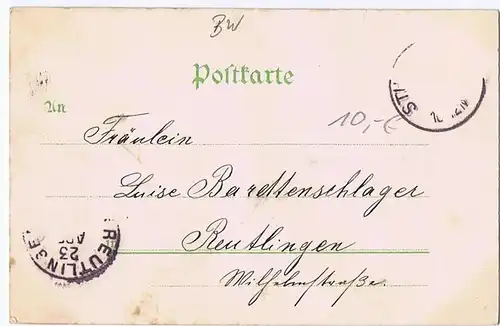 BW
Postkarte
An
10,-€
Fräulein
Luise Barettenschlager
Reutlingen
Wilhelmstraße.
REUTLINGEN
23